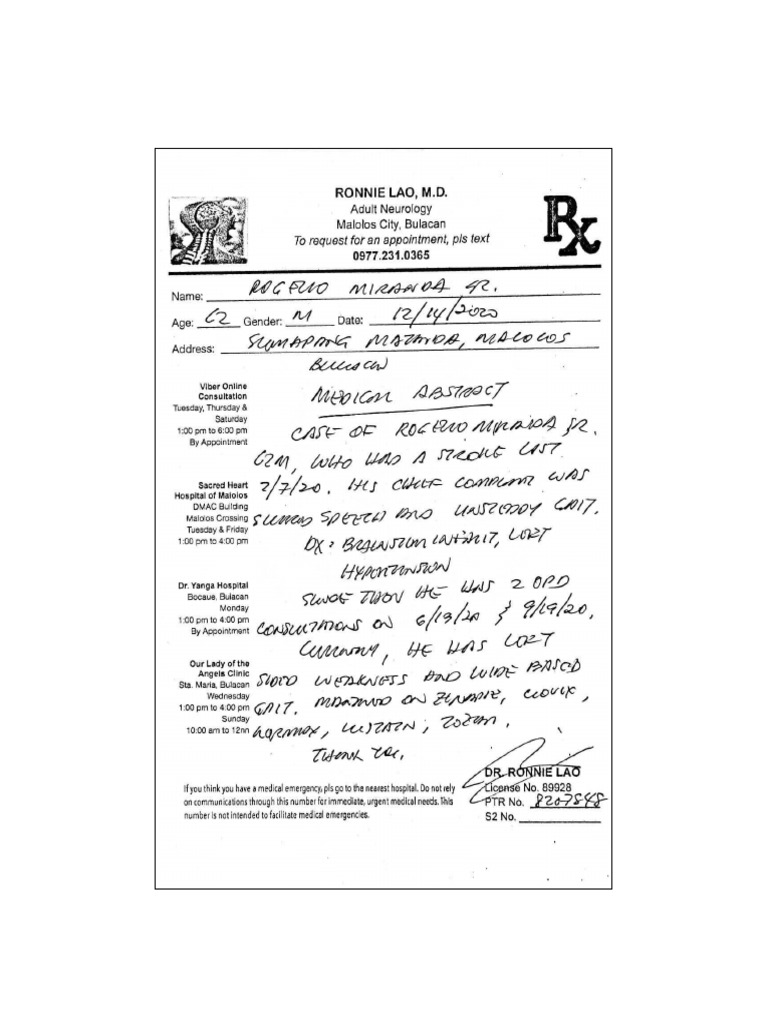 RONNIE LAO, M.D.
Adult Neurology
Malolos City, Bulacan
To request for an appointment, pls text
0977.231.0365
Rx
Name: ROGELIO MIRANDA JR.
Age: 62 Gender: M Date: 12/14/2020
Address: SUMAPANG MATANDA, MALOLOS
BULACAN
Viber Online
Consultation
Tuesday, Thursday &
Saturday
1:00 pm to 6:00 pm
By Appointment
Sacred Heart
Hospital of Malolos
DMAC Building
Malolos Crossing
Tuesday & Friday
1:00 pm to 4:00 pm
Dr. Yanga Hospital
Bocaue, Bulacan
Monday
1:00 pm to 4:00 pm
By Appointment
Our Lady of the
Angels Clinic
Sta. Maria, Bulacan
Wednesday
1:00 pm to 4:00 pm
Sunday
10:00 am to 12nn
MEDICAL ABSTRACT
CASE OF ROGELIO MIRANDA JR.
62M, WHO HAD A STROKE LAST
2/7/20. HIS CHIEF COMPLAINT WAS
SLURRED SPEECH AND UNSTEADY GAIT.
DX: BRAINSTEM INFARCT, LEFT
HYPERTENSION
SINCE THEN HE HAS 2 OPD
CONSULTATIONS ON 6/19/20 & 9/19/20.
CURRENTLY, HE HAS LEFT
SIDED WEAKNESS AND WIDE BASED
GAIT. MAINTAINED ON
THANK YOU.
DR. RONNIE LAO
License No. 89928
PTR No. 8207848
S2 No.
If you think you have a medical emergency, pls go to the nearest hospital. Do not rely
on communications through this number for immediate, urgent medical needs. This
number is not intended to facilitate medical emergencies.